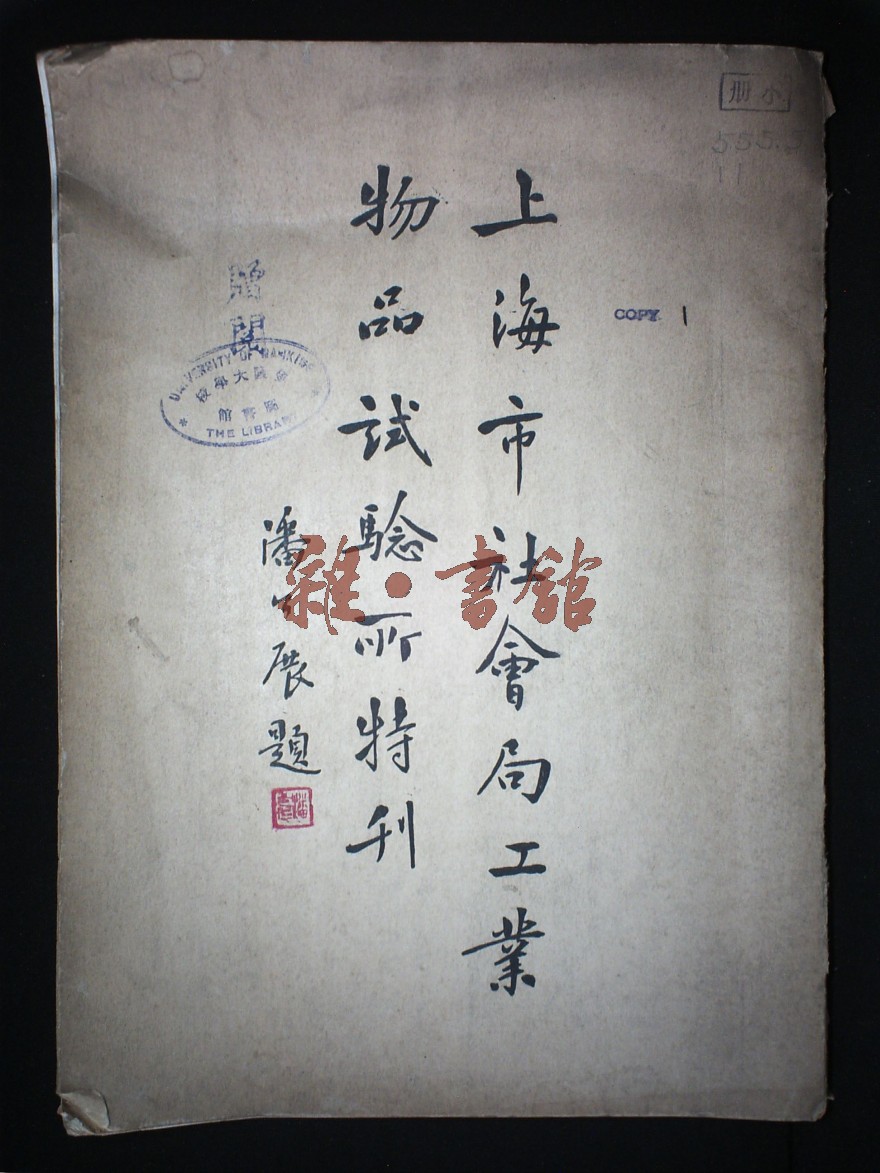 小册
555.5
11
COPY 1
上海市社會局工業
物品試騐所特刊
潘公展題
贈閱
UNIVERSITY OF NANKING
金陵大學校
圖書館
THE LIBRARY
雜·書館